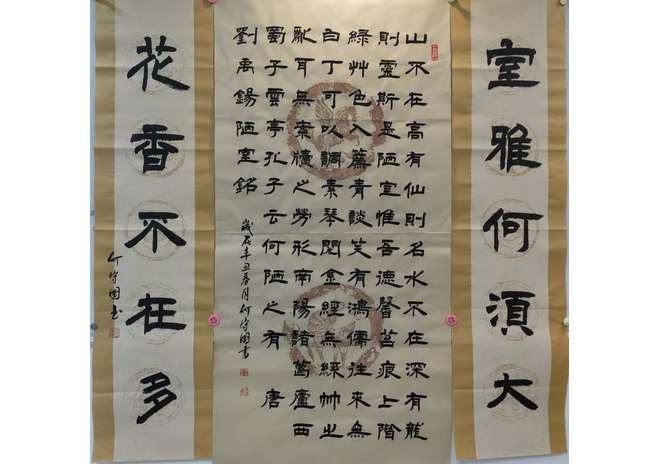 室雅何須大
山不在高有仙則名水不在深有龍
則靈斯是陋室惟吾德馨苔痕上階
綠艸色入簾青談笑有鴻儒往來無
白丁可以調素琴閱金經無絲竹之
亂耳無案牘之勞形南陽諸葛廬西
蜀子雲亭孔子云何陋之有 唐
劉禹錫陋室銘
歲在辛丑春月何守国書
花香不在多
何守国书